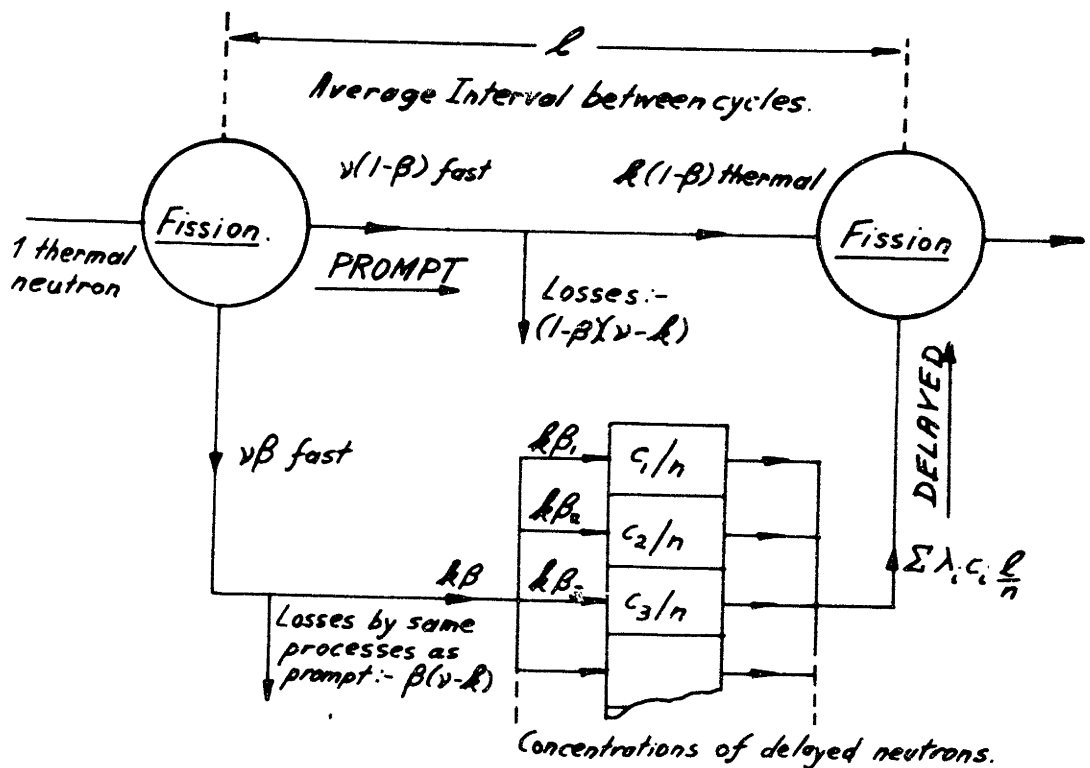 ℓ
Average Interval between cycles.
ν(1-β) fast
k(1-β) thermal
Fission.
Fission
1 thermal
neutron
PROMPT
Losses:-
(1-β)(ν-k)
DELAYED
νβ fast
kβ₁
c₁/n
kβ₂
c₂/n
kβ
kβ₃
c₃/n
Σ λᵢ cᵢ ℓ/n
Losses by same
processes as
prompt:- β(ν-k)
Concentrations of delayed neutrons.